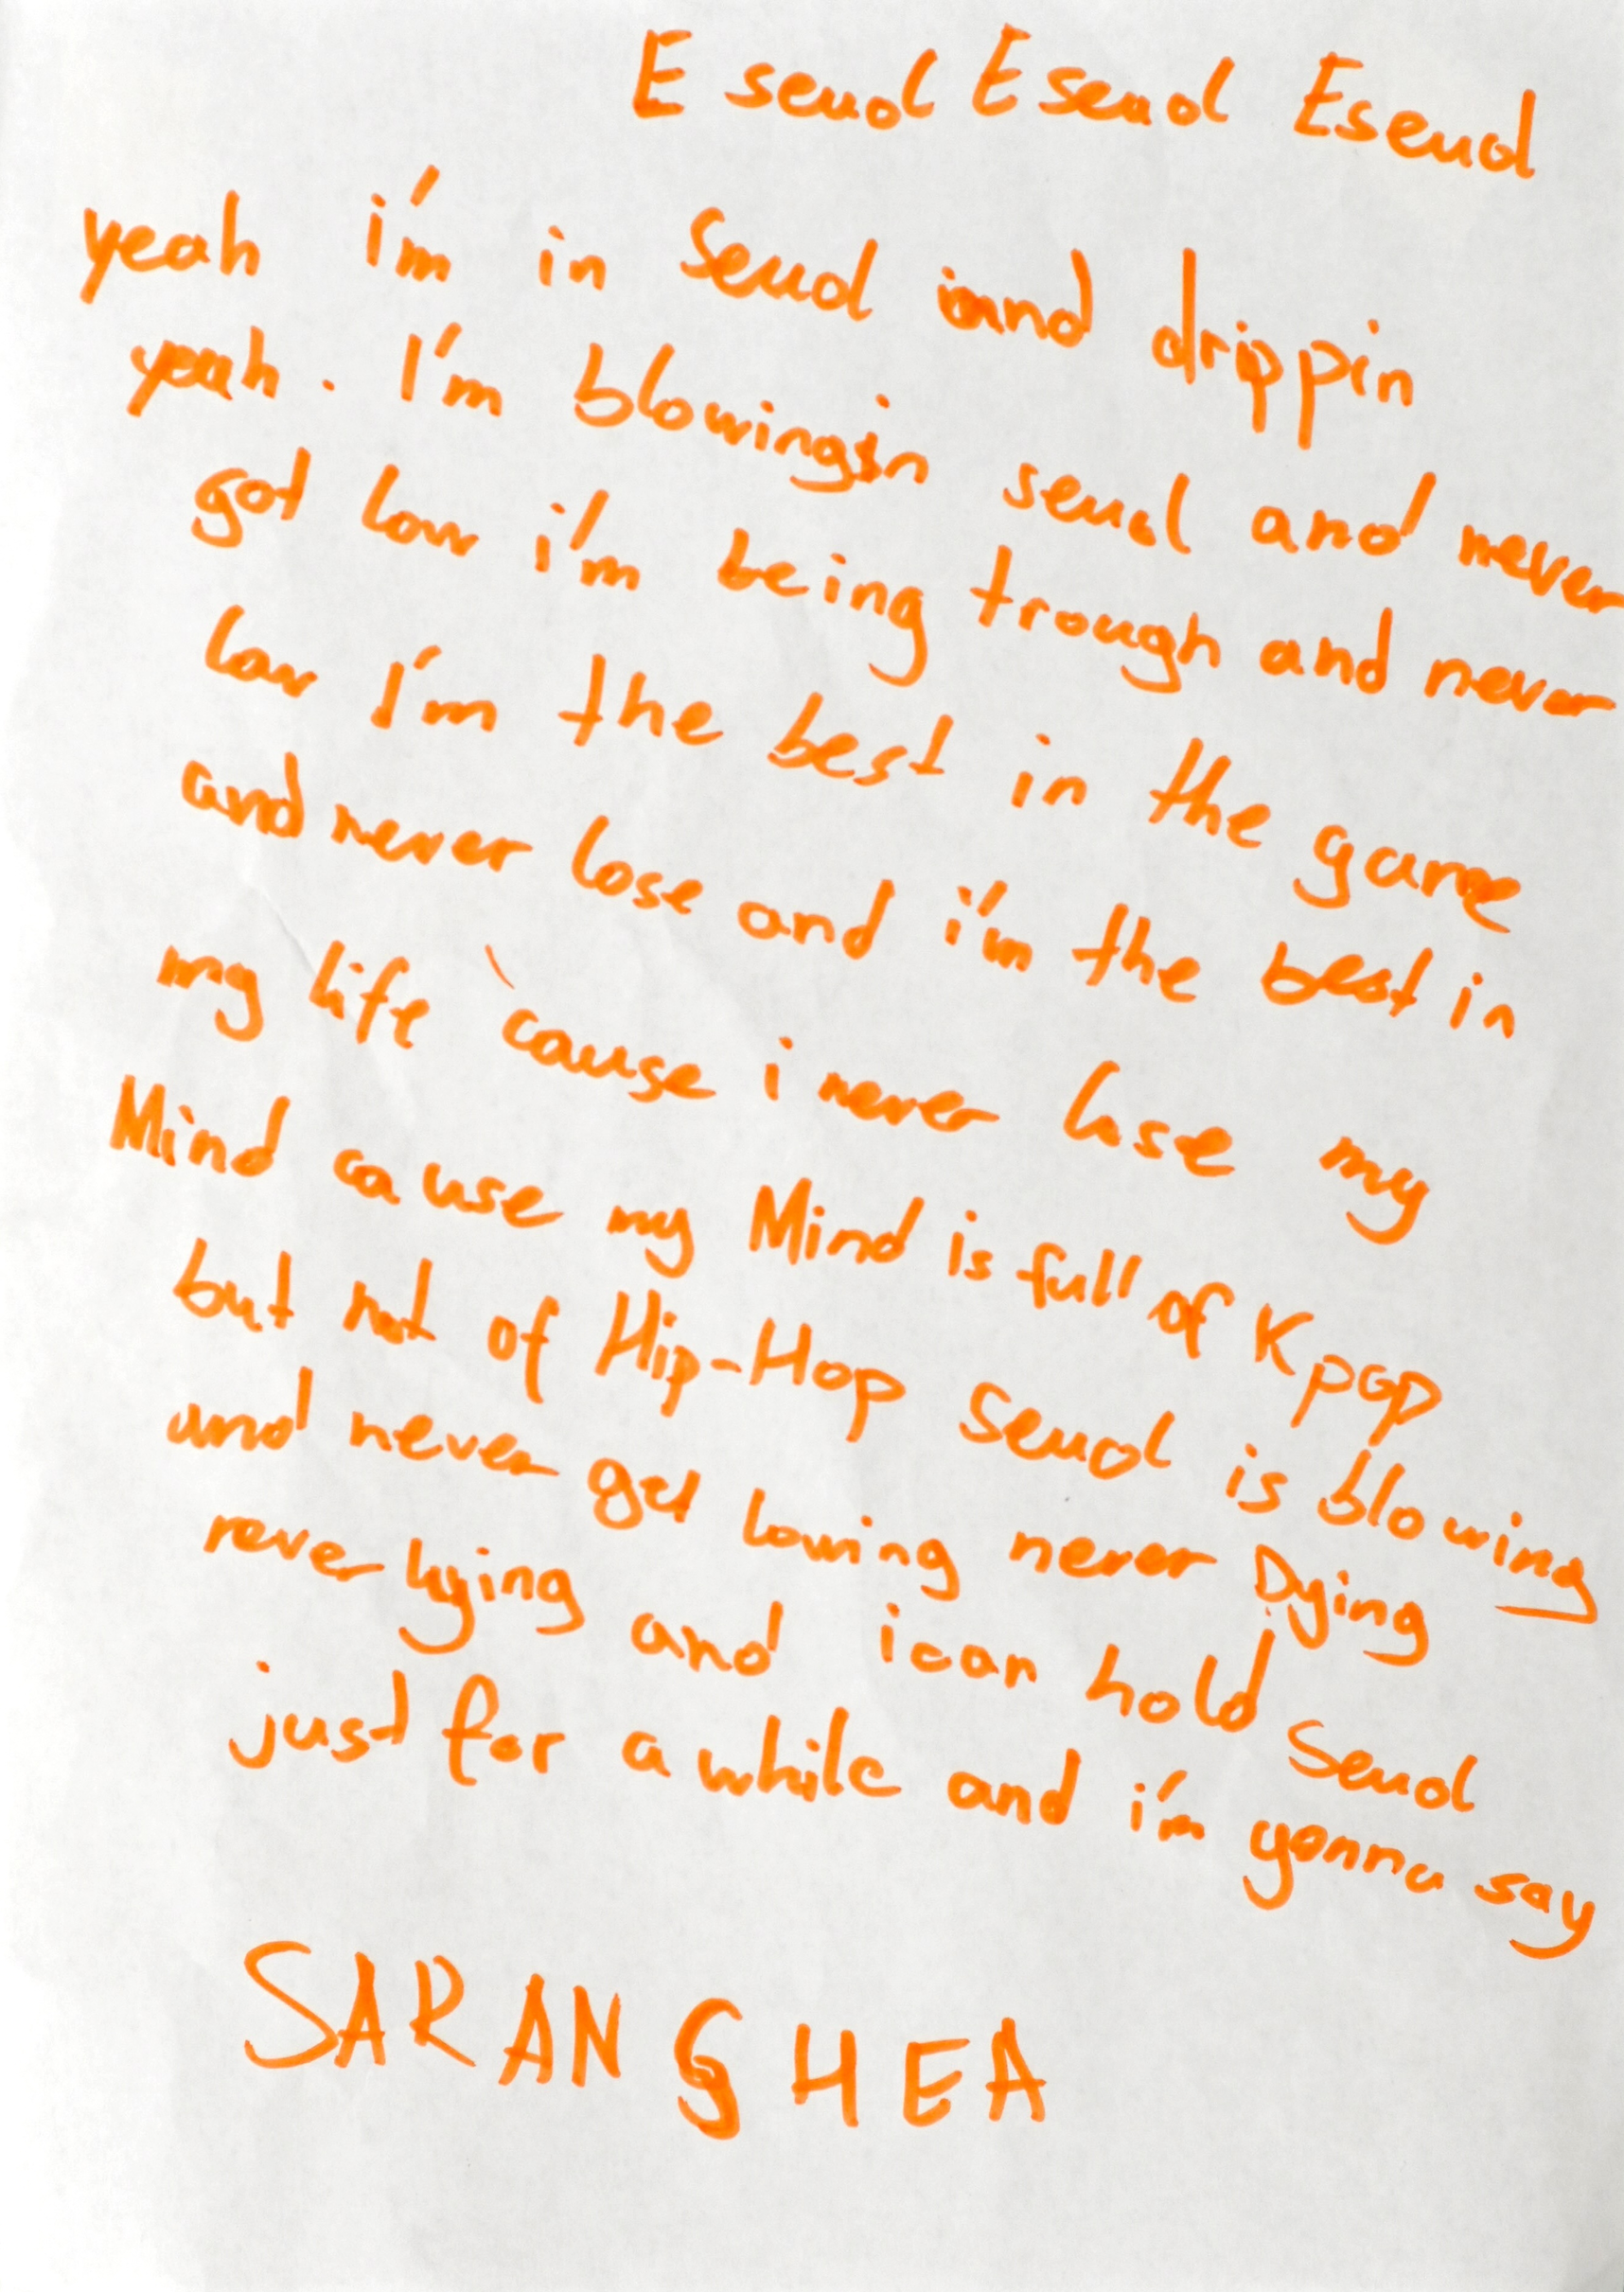 E seuol Eseuol Eseuol
yeah i'm in Seuol and drippin
yeah. I'm blowingin seuol and never
got low i'm being trough and never
low I'm the best in the game
and never lose and i'm the best in
my life 'cause i never lose my
Mind cause my Mind is full of Kpop
but not of Hip-Hop Seuol is blowing
and never get lowing never Dying
never lying and i can hold Seuol
just for a while and i'm gonna say
SARANGHEA